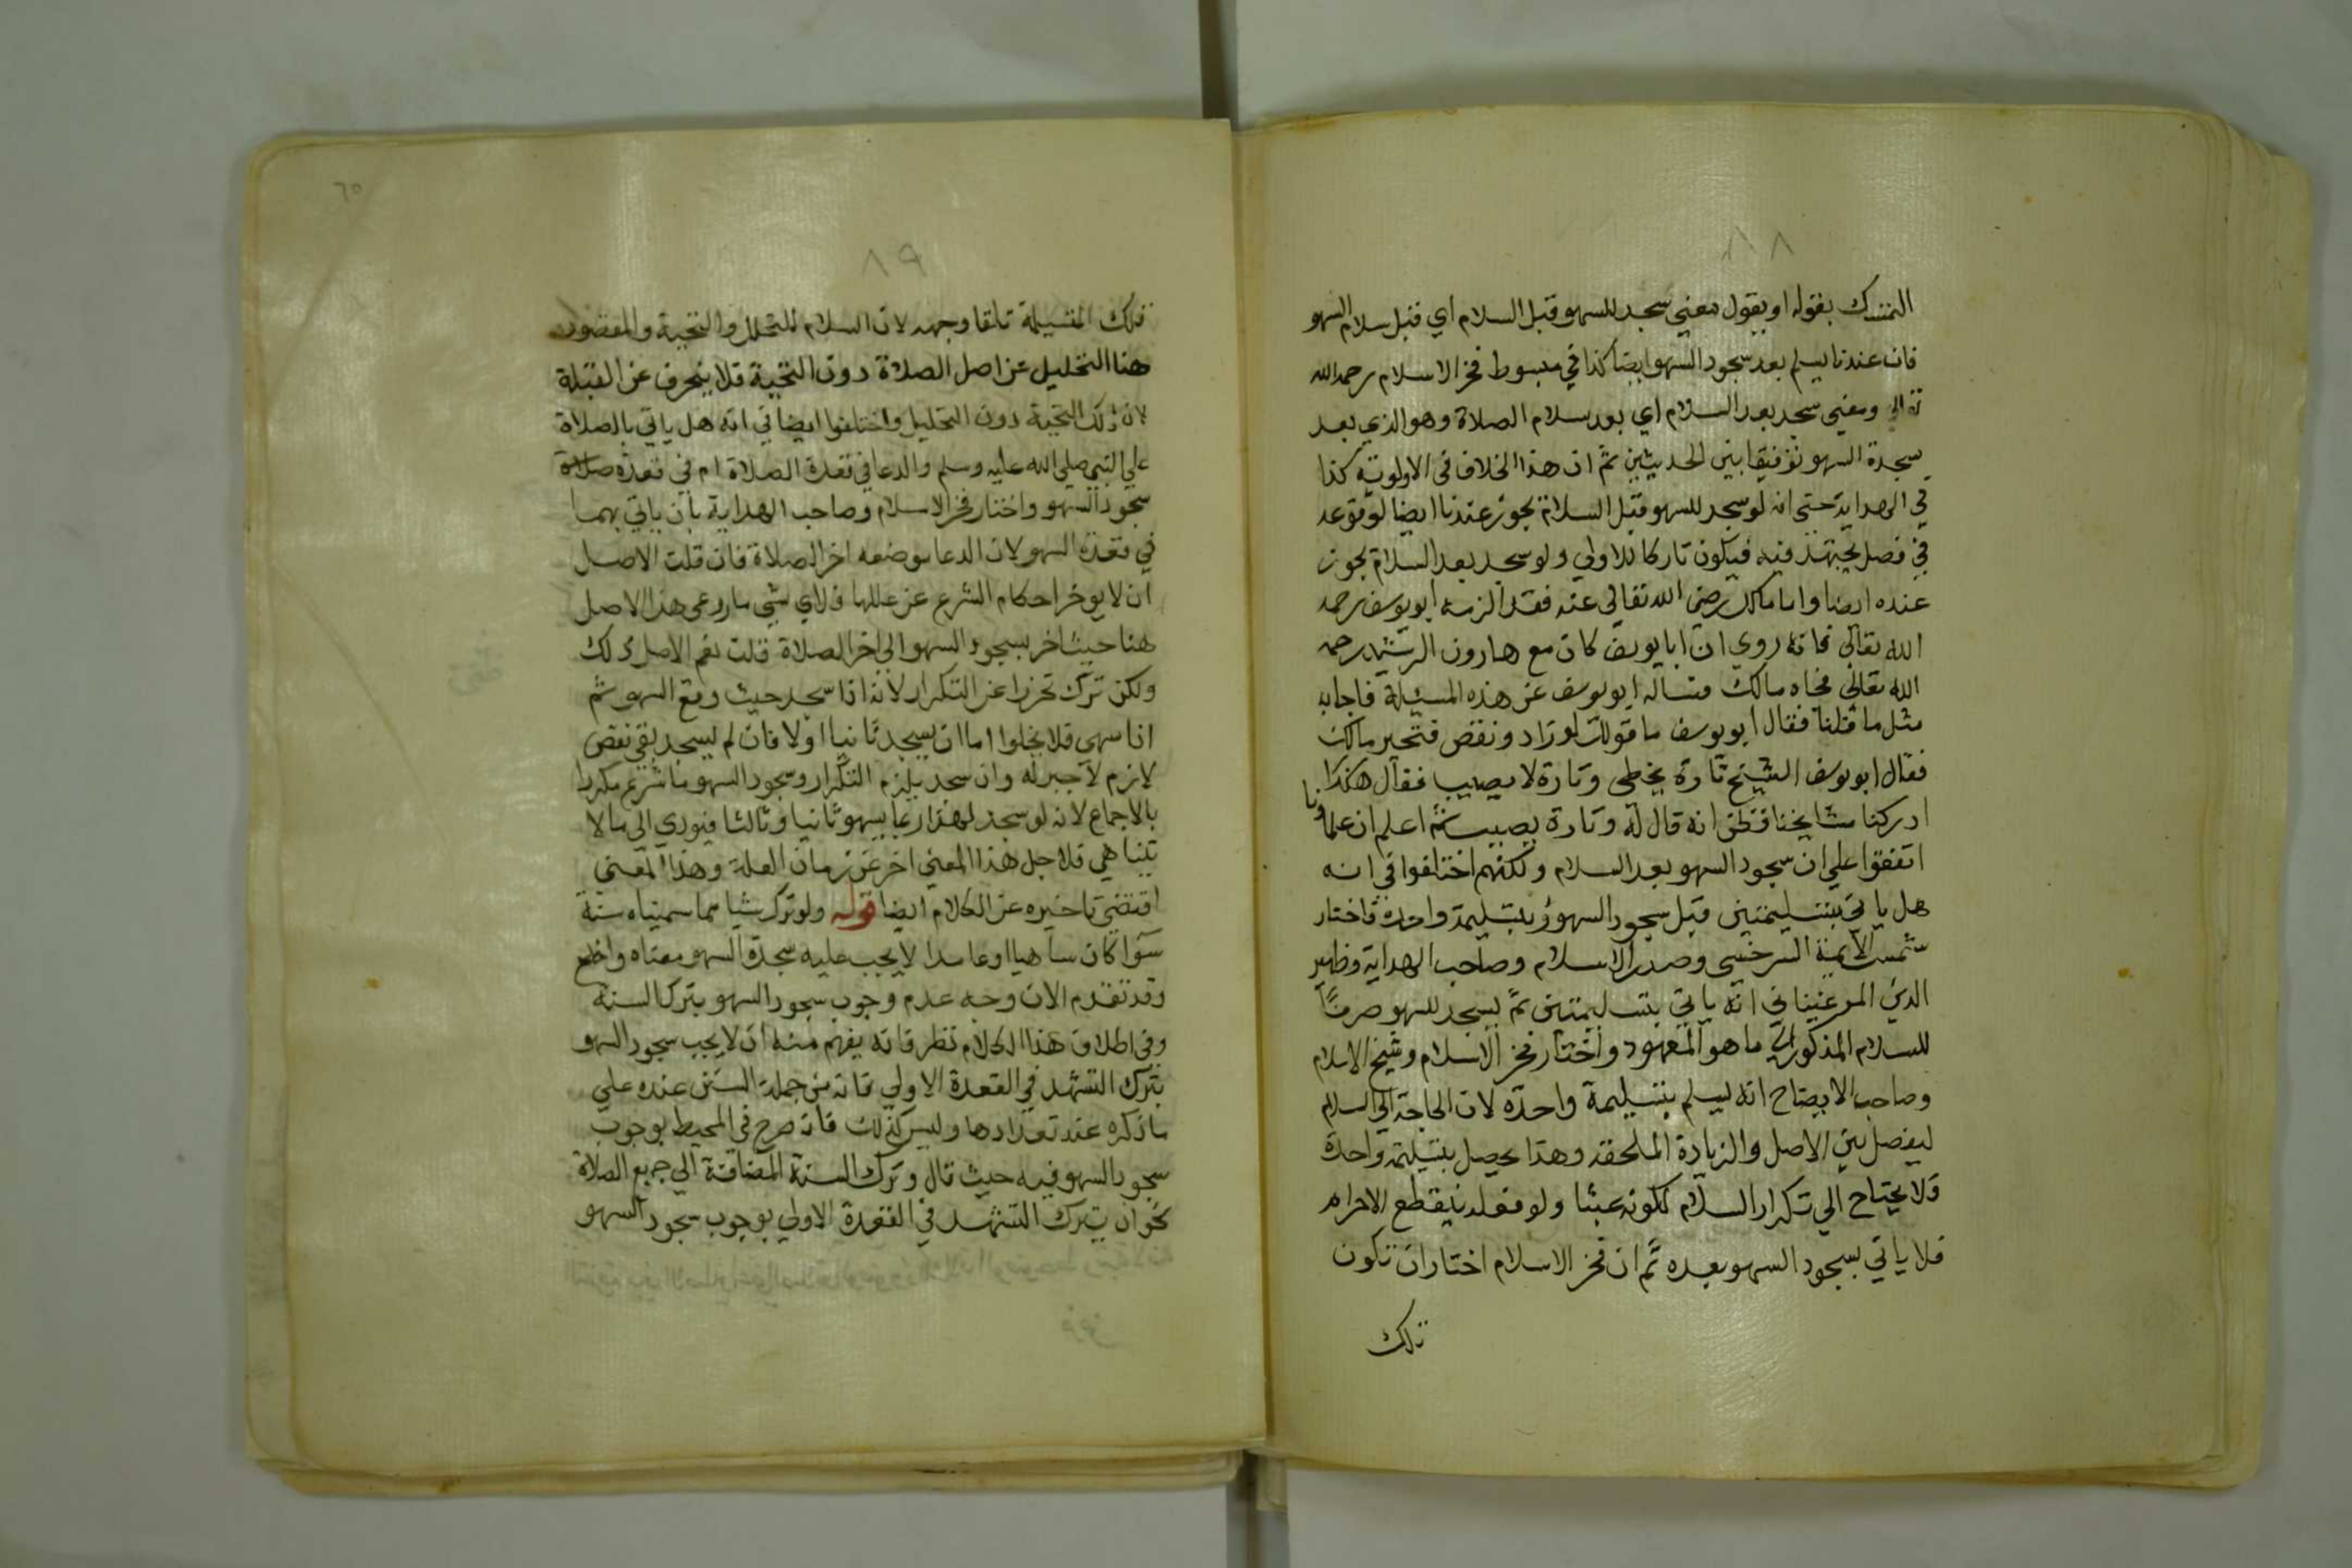 ٨٨
التمسك بقوله او يقول معني سجد للسهو قبل السلام اي قبل سلام السهو
فان عندنا يسلم بعد سجود السهو ايضا كذا في مبسوط فخر الاسلام رحمه الله
تعالي ومعني سجد بعد السلام اي بعد سلام الصلاة وهو الذي بعد
سجدة السهو توفيقا بين الحديثين ثم ان هذا الخلاف في الاولوية كذا
في الهداية حتي انه لو سجد للسهو قبل السلام يجوز عندنا ايضا لوقوعه
في فصل مجتهد فيه فيكون تاركا للاولي ولو سجد بعد السلام يجوز
عنده ايضا واما مالك رضي الله تعالي عنه فقد الزمه ابو يوسف رحمه
الله تعالي فانه روي ان ابا يوسف كان مع هارون الرشيد رحمه
الله تعالي فجاه مالك فساله ابو يوسف عن هذه المسئلة فاجابه
مثل ما قلنا فقال ابو يوسف ما قولك لو زاد ونقص فتحير مالك
فقال ابو يوسف الشيخ تارة يخطي وتارة لا يصيب فقال هكذا
ادركنا مشايخنا فظن انه قال له وتارة يصيب ثم اعلم ان علماونا
اتفقوا علي ان سجود السهو بعد السلام ولكنهم اختلفوا في انه
هل ياتي بتسليمتين قبل سجود السهو او بتسليمة واحدة فاختار
شمس الايمة السرخسي وصدر الاسلام وصاحب الهداية وظهير
الدين المرغيناني انه ياتي بتسليمتين ثم يسجد للسهو صرفًا
للسلام المذكور الي ما هو المعهود واختار فخر الاسلام وشيخ الاسلام
وصاحب الايضاح انه يسلم بتسليمة واحدة لان الحاجة الي السلام
ليفصل بين الاصل والزيادة الملحقة وهذا يحصل بتسليمة واحدة
فلا يحتاج الي تكرار السلام لكونه عبثا ولو فعله ينقطع الاحرام
فلا ياتي بسجود السهو بعده ثم ان فخر الاسلام اختار ان تكون
تلك
٦٥
٨٩
تلك التسليمة تلقا وجهه لان السلام للتحلل والتحية والمقصود
هنا التحليل عن اصل الصلاة دون التحية فلا ينحرف عن القبلة
لان ذلك التحية دون التحليل واختلفوا ايضا في انه هل ياتي بالصلاة
علي النبي صلي الله عليه وسلم والدعا في قعدة الصلاة ام في قعدة صلاة
سجود السهو واختار فخر الاسلام وصاحب الهداية بان ياتي بهما
في قعدة السهو لان الدعا موضعه اخر الصلاة فان قلت الاصل
ان لا يوخر احكام الشرع عن عللها فلاي شي ما روعي هذا الاصل
هنا حيث اخر سجود السهو الي اخر الصلاة قلت نعم الاصل ذلك
ولكن ترك تحرزا عن التكرار لانه اذا سجد حيث وقع السهو ثم
اذا سهي فلا يخلوا اما ان يسجد ثانيا اولا فان لم يسجد بقي نقص
لازم لا جبر له وان سجد يلزم التكرار وسجود السهو ما شرع مكررا
بالاجماع لانه لو سجد لهذا ربما يسهو ثانيا وثالثا فيودي الي ما لا
يتناهي فلاجل هذا المعني اخر عن زمان العلة وهذا المعني
اقتضي تاخيره عن الكلام ايضا قوله ولو ترك شيا مما سميناه سنة
سوا كان ساهيا او عامدا لا يجب عليه سجدة السهو معناه واضح
وقد تقدم الان وجه عدم وجوب سجود السهو بترك السنة
وفي اطلاق هذا الكلام نظر فانه يفهم منه ان لا يجب سجود السهو
بترك التشهد في القعدة الاولي فانه من جملة السنن عنده علي
ما ذكره عند تعدادها وليس كذلك فانه صرح في المحيط بوجوب
سجود السهو فيه حيث قال وترك السنة المضافة الي جميع الصلاة
نحو ان يترك التشهد في القعدة الاولي بوجوب سجود السهو